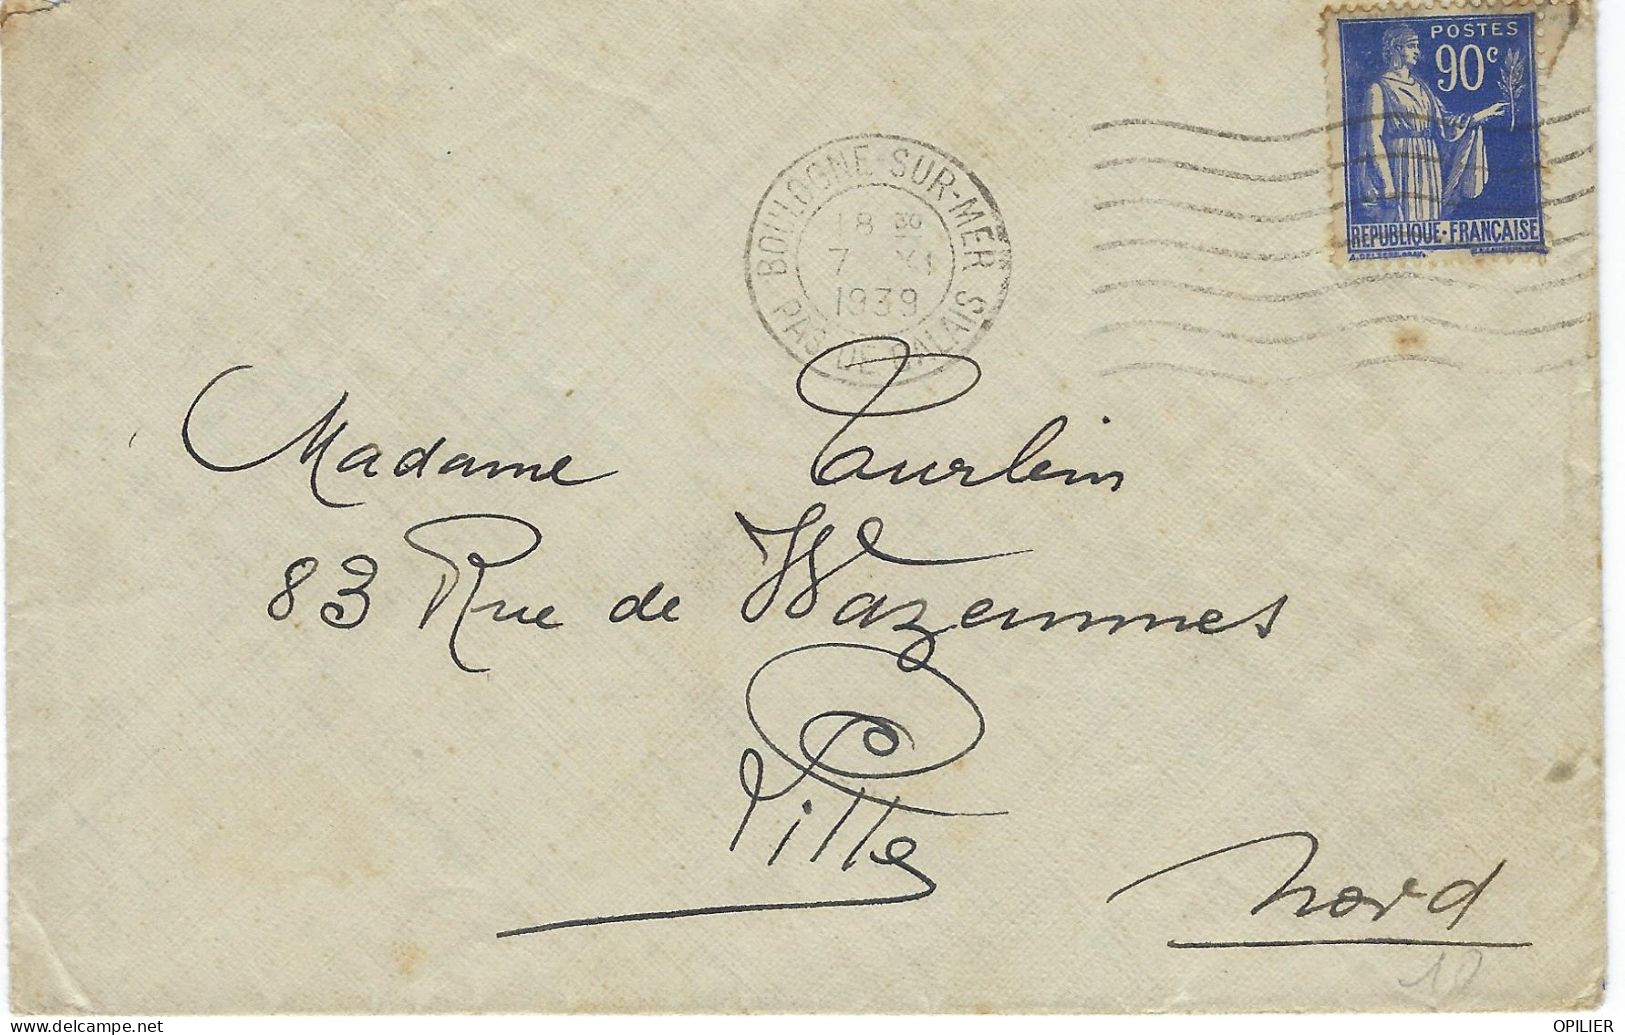 POSTES
90c
REPUBLIQUE·FRANÇAISE
BOULOGNE-SUR-MER
18 30
7 XI
1939
PAS DE CALAIS
Madame Turlein
83 Rue de Wazemmes
Lille
Nord
www.delcampe.net
OPILIER